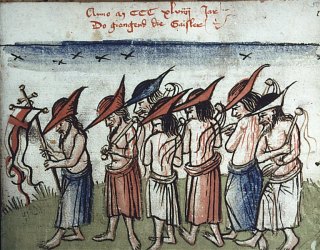 Anno dn CCC xlviiij Jar
Do giangend die Gaisler